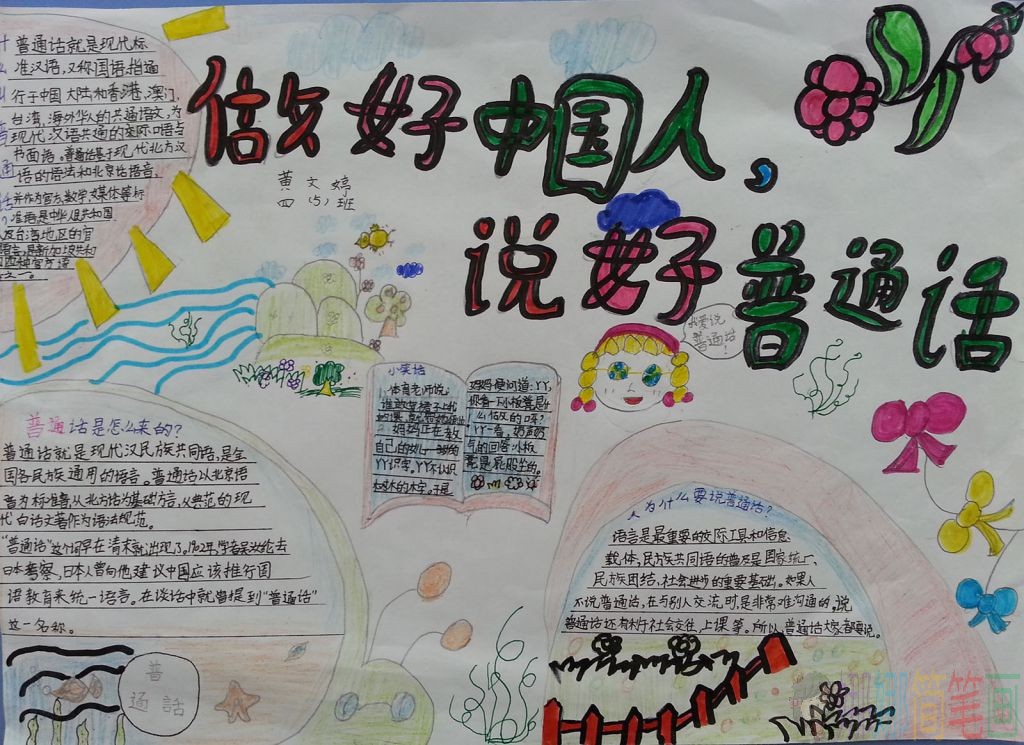 做好中国人，
说好普通话
黄文婷
四（5）班
普通话就是现代标
准汉语，又称国语，指通
行于中国大陆和香港、澳门、
台湾，海外华人的共通语文，为
现代汉语共通的交际口语与
书面语。普通话基于现代北方汉
语的语法和北京话语音，
并作为官方、教学、媒体等标
准语是中华人民共和国
我爱说
普通话！
小笑话
体育老师说：
妈妈正在教
自己的幼儿
丫丫识字，丫丫不认识
妈妈便问道：丫丫，
你看一下小板凳是什
么做的呀？
丫丫一看，奶声奶
气的回答：小板
凳是屁股坐的。
普通话是怎么来的？
普通话就是现代汉民族共同语，是全
国各民族通用的语言。普通话以北京语
音为标准音，以北方话为基础方言，以典范的现
代白话文著作为语法规范。
“普通话”这个词早在清末就出现了。1902年，学者吴汝纶去
日本考察，日本人曾向他建议中国应该推行国
语教育来统一语言。在谈话中就曾提到“普通话”
这一名称。
普
通話
为什么要说普通话？
语言是最重要的交际工具和信息
载体，民族共同语的普及是国家统一、
民族团结、社会进步的重要基础。如果人
不说普通话，在与别人交流时，是非常难沟通的，说
普通话还有利于社会交往，上课等。所以，普通话大家都要说。
简笔画